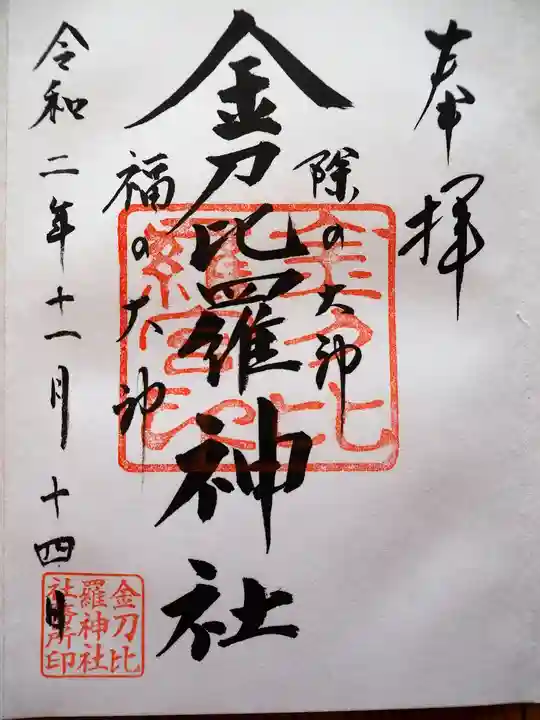 奉拝
除の大神
金刀比羅神社
福の大神
令和二年十一月十四日
金刀比
羅神社
社務所印